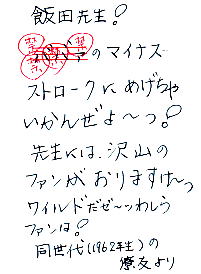 飯田先生!
のマイナス
ストロークにめげちゃ
いかんぜよ〜っ!
先生には、沢山の
ファンがおりますけ〜っ
ワイルドだぜ〜ッわしら
ファンは!
同世代(1962年生)の
僚友より